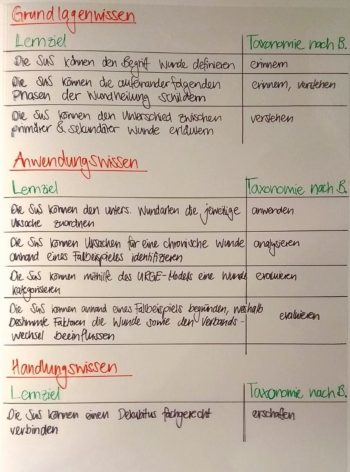 Grundlagenwissen
Lernziel Taxonomie nach B.
Die SuS können den Begriff Wunde definieren erinnern
Die SuS können die aufeinanderfolgenden erinnern, verstehen
Phasen der Wundheilung schildern
Die SuS können den Unterschied zwischen verstehen
primärer & sekundärer Wunde erläutern
Anwendungswissen
Lernziel Taxonomie nach B.
Die SuS können den unters. Wundarten die jeweilige anwenden
Ursache zuordnen
Die SuS können Ursachen für eine chronische Wunde analysieren
anhand eines Fallbeispieles identifizieren
Die SuS können mithilfe des URGE-Models eine Wunde evaluieren
kategorisieren
Die SuS können anhand eines Fallbeispiels begründen, weshalb evaluieren
bestimmte Faktoren die Wunde sowie den Verbands-
wechsel beeinflussen
Handlungswissen
Lernziel Taxonomie nach B.
Die SuS können einen Dekubitus fachgerecht erschaffen
verbinden